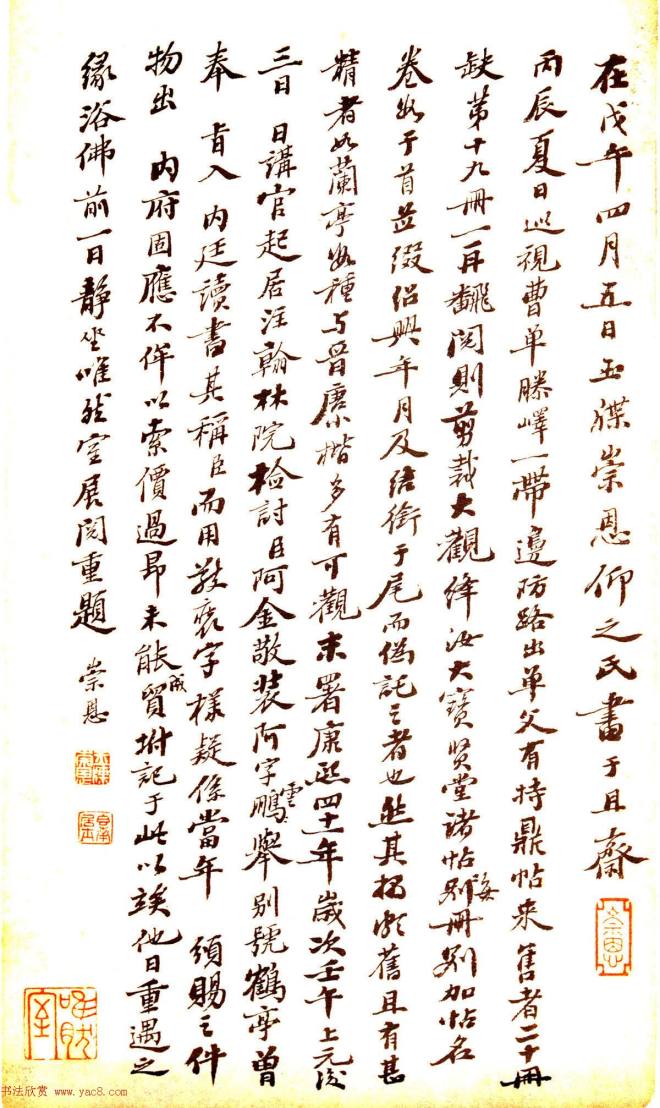 在戊午四月五日玉牒崇恩仰之氏書于且齋
丙辰夏日巡視曹單滕嶧一帶邊防路出單父有持鼎帖來售者二十冊
缺第十九冊一再翻閱則剪裁大觀絳汝大寶賢堂諸帖每冊別加帖名
卷數于首並綴紹興年月及結銜于尾而偽託之者也然其搨頗舊且有甚
精者如蘭亭數種与晉唐小楷多有可觀末署康熙四十一年歲次壬午上元後
三日 日講官起居注翰林院檢討臣阿金敬裝阿字雲鵬舉別號鶴亭曾
奉 旨入 內廷讀書其稱臣而用敬裝字樣疑係當年 頒賜之件
物出 內府固應不侔以索價過昂未能成貿坿記于此以俟他日重遇之
緣浴佛前一日靜坐唯然室展閱重題 崇恩
崇恩
書法欣赏 www.yac8.com